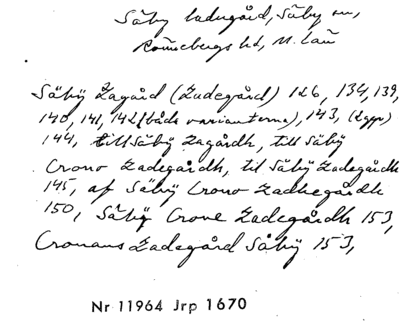 Säby ladugård, Säby sn,
Rönnebergs hd, M. län
Säbÿ Lagård (Ladegård) 126, 134, 139,
140, 141, 142 (båda varianterna), 143, (2 ggr)
144, till Säbÿ Lagårdh, till Säbÿ
Crono Ladegårdh, til Säbÿ Ladegårdh
145, af Säbÿ Crono Ladhegårdh
150, Säbÿ Crone Ladegårdh 153,
Cronans Ladegård Säbÿ 153,
Nr 11964 Jrp 1670